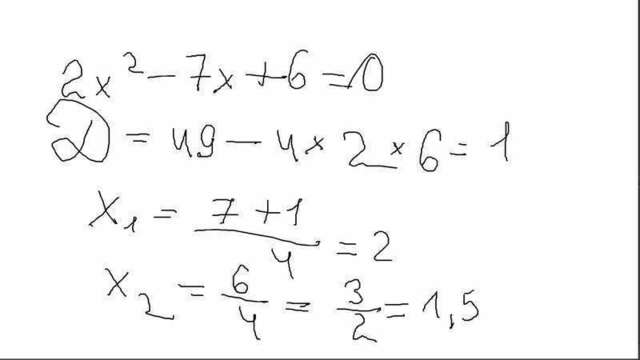 2x² - 7x + 6 = 0
D = 49 - 4 × 2 × 6 = 1
x₁ = (7 + 1)/4 = 2
x₂ = 6/4 = 3/2 = 1,5